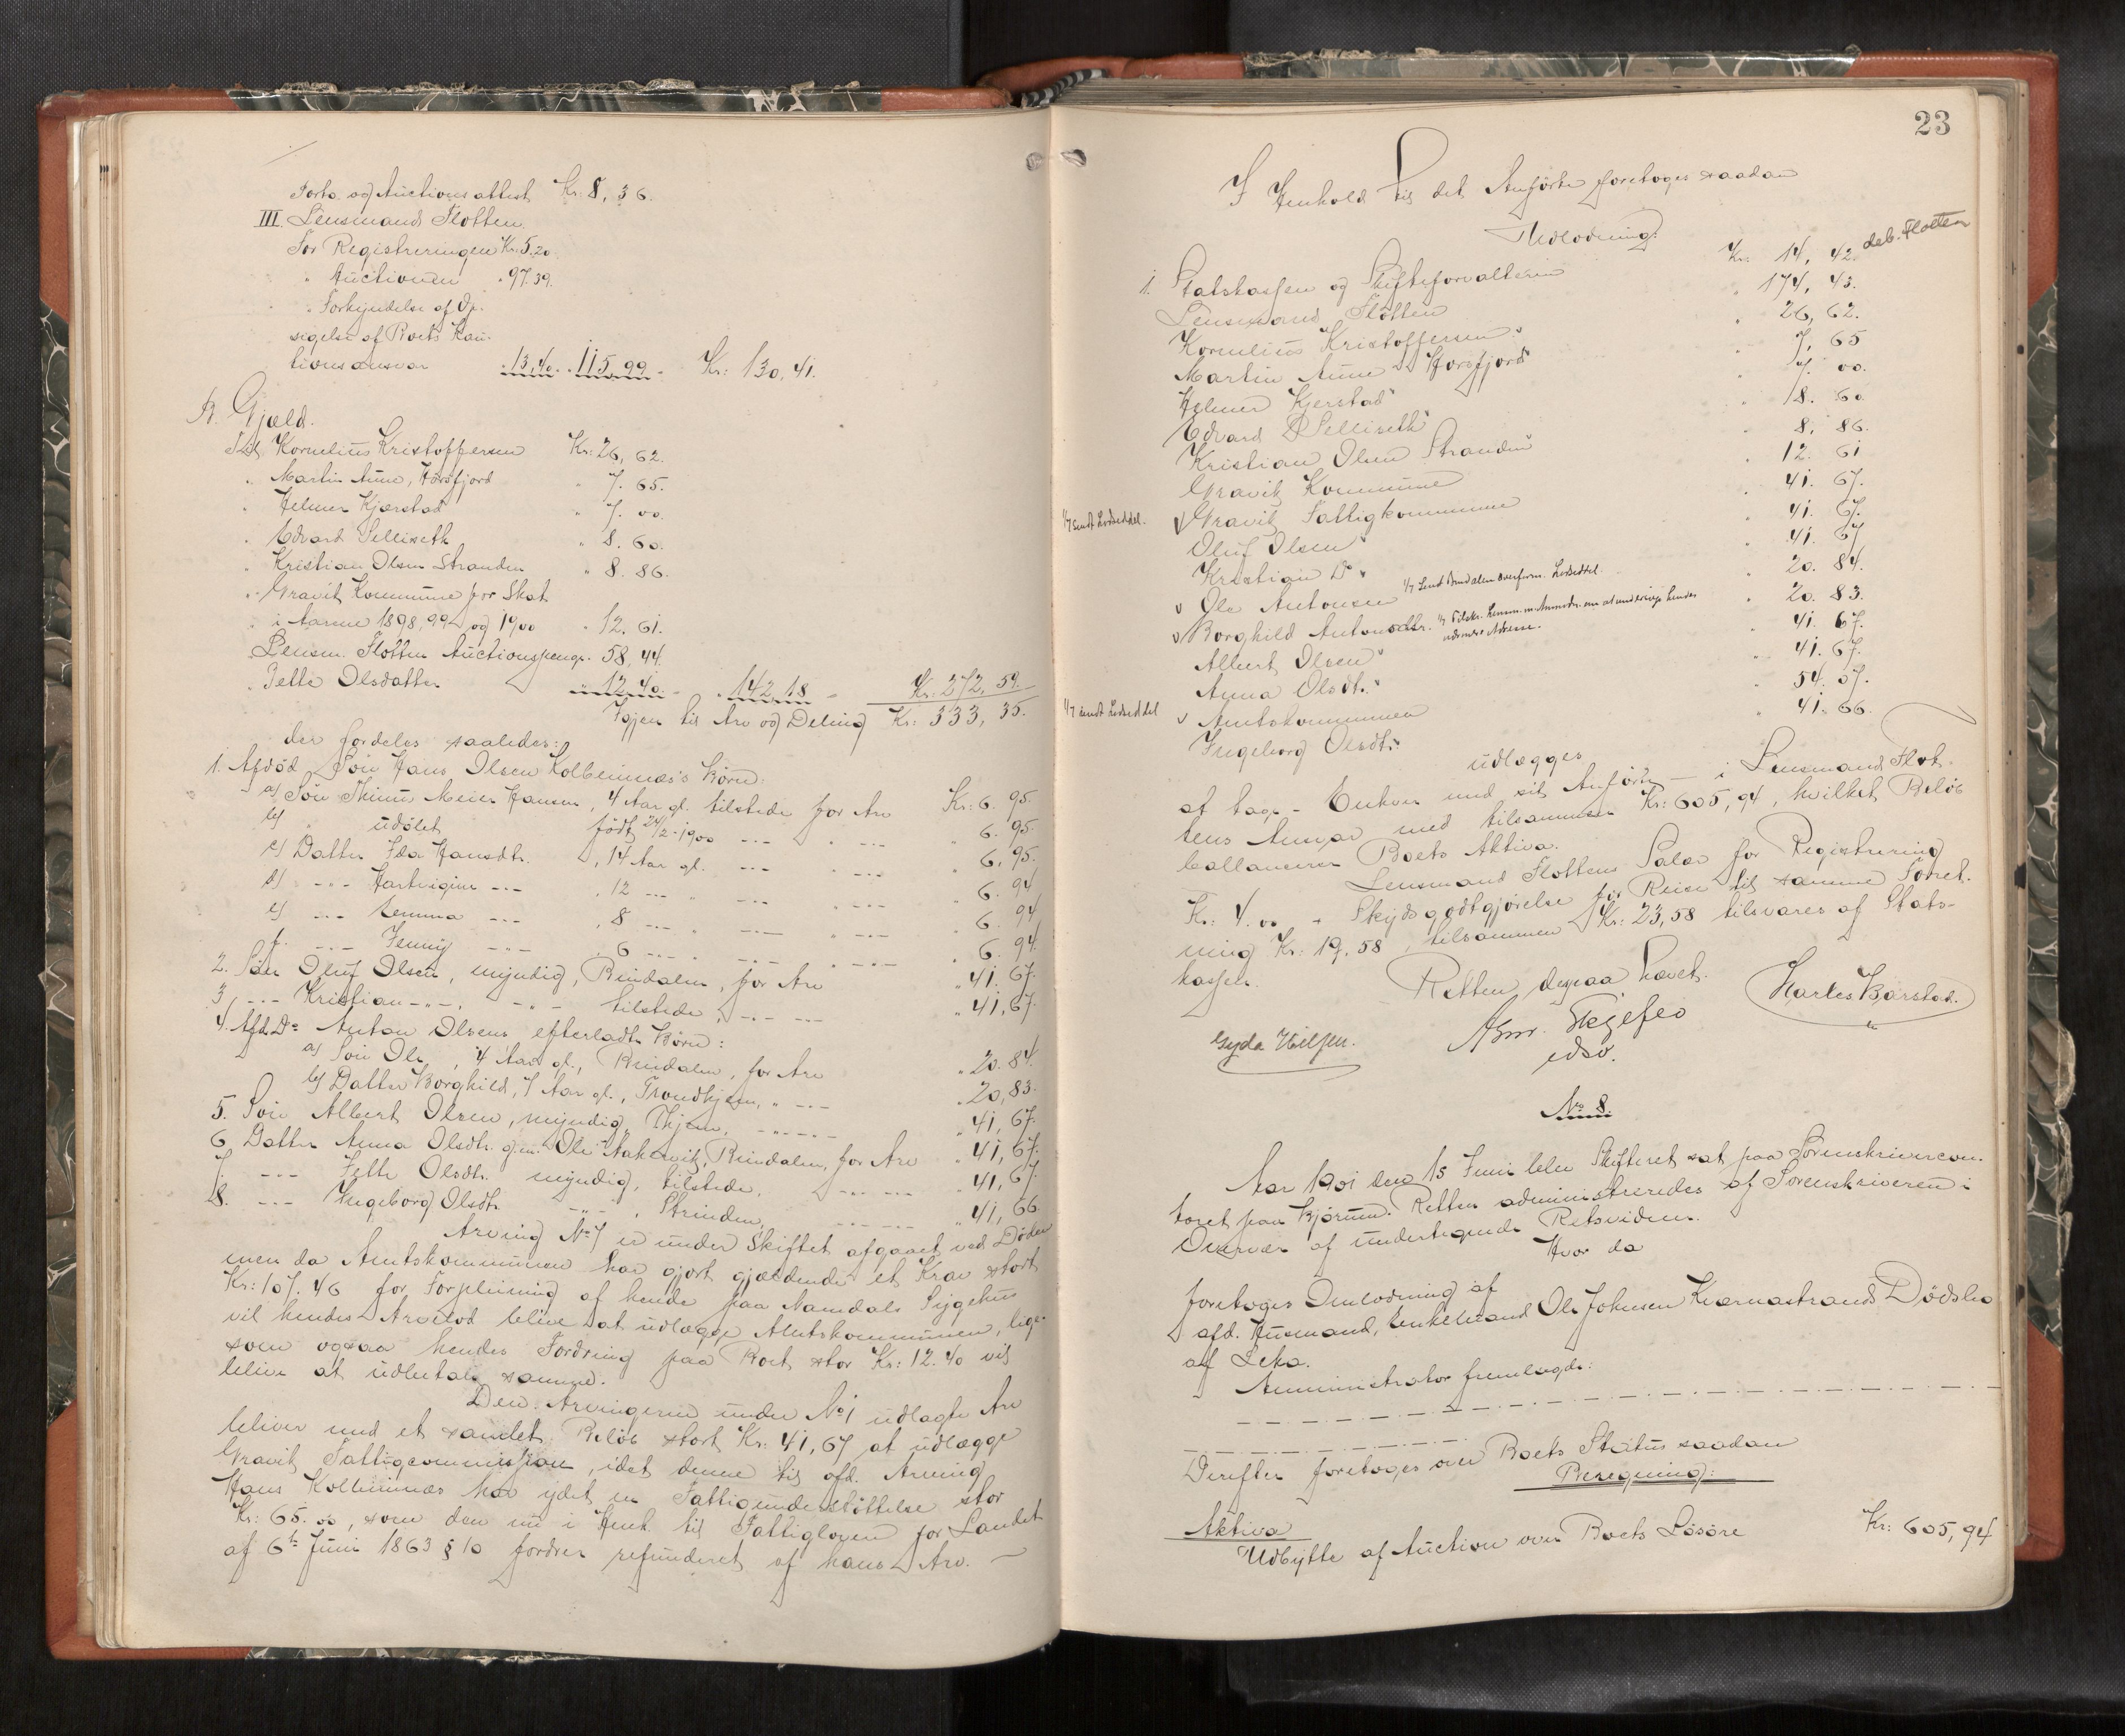 Porto og Auctionsattest Kr. 8,36.
III. Lensmand Flotten.
For Registreringen Kr. 5.20
" Auctionen " 97.39.
" Forkyndelse af Op-
sigelse af Boets Kau-
tionsansvar " 13,40. " 115,99 - Kr: 130,41.
B. Gjæld.
Til Kornelius Kristoffersen Kr: 26,62.
" Martin Aune, Horsfjord " 7.65.
" Helmer Kjærstad " 7.00.
" Edvard Selliseth " 8.60.
" Kristian Olsen Stranden " 8.86.
" Gravik Kommune for Skat
i Aarene 1898, 99 og 1900 " 12.61.
" Lensm. Flotten Auctionspenge. 58,44.
" Jette Olsdatter " 12.40. - " 142,18 - Kr: 272,59.
Igjen til Arv og Deling Kr: 333,35.
der fordeles saaledes:
1. Afdød Søn Hans Olsen Kolbeinnæs's Børn:
a) Søn Thinus Meier Hansen, 4 Aar gl. tilstede for Arv Kr: 6.95.
b) " udøbt født 24/2-1900 -"- " -"- " 6.95.
c) Datter Ida Hansdtr. , 14 Aar gl. -"- " -"- " 6,95.
d) -"- Hartvigine -"- , 12 -"- " -"- " -"- " 6.94
e) -"- Hemma -"- , 8 -"- " -"- " -"- " 6.94
f. -"- Jenny -"- , 6 -"- " -"- " -"- " 6.94.
2. Søn Oluf Olsen, myndig, Bindalen, for Arv " 41.67.
3 -"- Kristian -"-, -"- tilstede, -"- -"- " 41,67.
4. Afd. Do Anton Olsens efterladte Børn:
a) Søn Ole, 4 Aar gl., Bindalen, for Arv " 20.84.
b) Datter Borghild, 7 Aar gl., Trondhjem, " -"- " 20,83.
5. Søn Albert Olsen, myndig, Thjem, -"- -"- " 41,67.
6. Datter Anna Olsdtr. g.m. Ole Aakervik, Bindalen, for Arv " 41,67.
7. -"- Jette Olsdtr. myndig, tilstede, -"- -"- " 41,67.
8. -"- Ingeborg Olsdtr. -"- , Strinden, -"- -"- " 41,66
Arving No 7 er under Skiftet afgaaet ved Døden
men da Amtskommunen har gjort gjældende et Krav stort
Kr: 107.46 for Forpleining af hende paa Namdals Sygehus
vil hendes Arvelod blive at udlægge Amtskommunen, lige-
som ogsaa hendes Fordring paa Boet stor Kr: 12.40 vil
blive at udbetale samme.
Den Arvingerne under No 1 udlagte Arv
bliver med et samlet Beløb stort Kr: 41,67 at udlægge
Gravik Fattigcommission, idet denne til afd. Arving
Hans Kolbeinnæs har ydet en Fattigunderstøttelse stor
Kr: 65.00, som den nu i Henh. til Fattigloven for Landet
af 6te Juni 1863 § 10 fordrer refunderet af hans Arv. -
23
I Henhold til det Anførte foretoges saadan
Udlodning:
1. Statskassen og Skifteforvalteren Kr. 14,42. deb. Flotten
Lensmand Flotten " 174,43.
Kornelius Kristoffersen " 26,62.
Martin Aune Horsfjord " 7,65
Helmer Kjerstad " 7.00.
Edvard Selliseth " 8.60
Kristian Olsen Stranden " 8.86.
Gravik Kommune " 12.61
1/7 sendt Lodseddel. v Gravik Fattigkommune " 41.67.
Oluf Olsen " 41.67.
Kristian Do " 41.67
v Ole Antonsen 1/7 Sendt Bindalen overform. Lodseddel. " 20.84.
v Borghild Antonsdtr. 1/7 Tilskr. Lensm. m. Anmodn. om at underrige hendes " 20.83.
nærmere Adresse.
Albert Olsen " 41.67.
Anna Olsdtr. " 41.67.
1/7 sendt Lodseddel v Amtskommunen " 54.07.
Ingeborg Olsdtr. " 41.66.
udlægges
at tage - Enhver med sit Anførte - i Lensmand Flot-
tens Ansvar med tilsammen Kr: 605,94, hvilket Beløb
ballancerer Boets Aktiva.
Lensmand Flottens Salær for Registrering
Kr: 4.00 + Skydsgodtgjørelse for Reise til samme Forret-
ning Kr: 19.58, tilsammen Kr: 23,58 tilsvares af Stats-
kassen.
Retten derpaa hævet.
Gyda Nilsen. Skjeflo Harles Barstad.
edsv.
No 8.
Aar 1901 den 15 Juni blev Skifteret sat paa Sorenskrivercon-
toret paa Bjørum. Retten administreredes af Sorenskriveren i
Overvær af undertegnede Retsvidner.
Hvor da
foretoges Omlodning af
afd. Husmand, Enkemand Ole Johnsen Kvernastrands Dødsbo
af Leka.
Administrator fremlagde:
Derefter foretoges over Boets Status saadan
Beregning:
Aktiva
Udbytte af Auction over Boets Løsøre Kr: 605,94